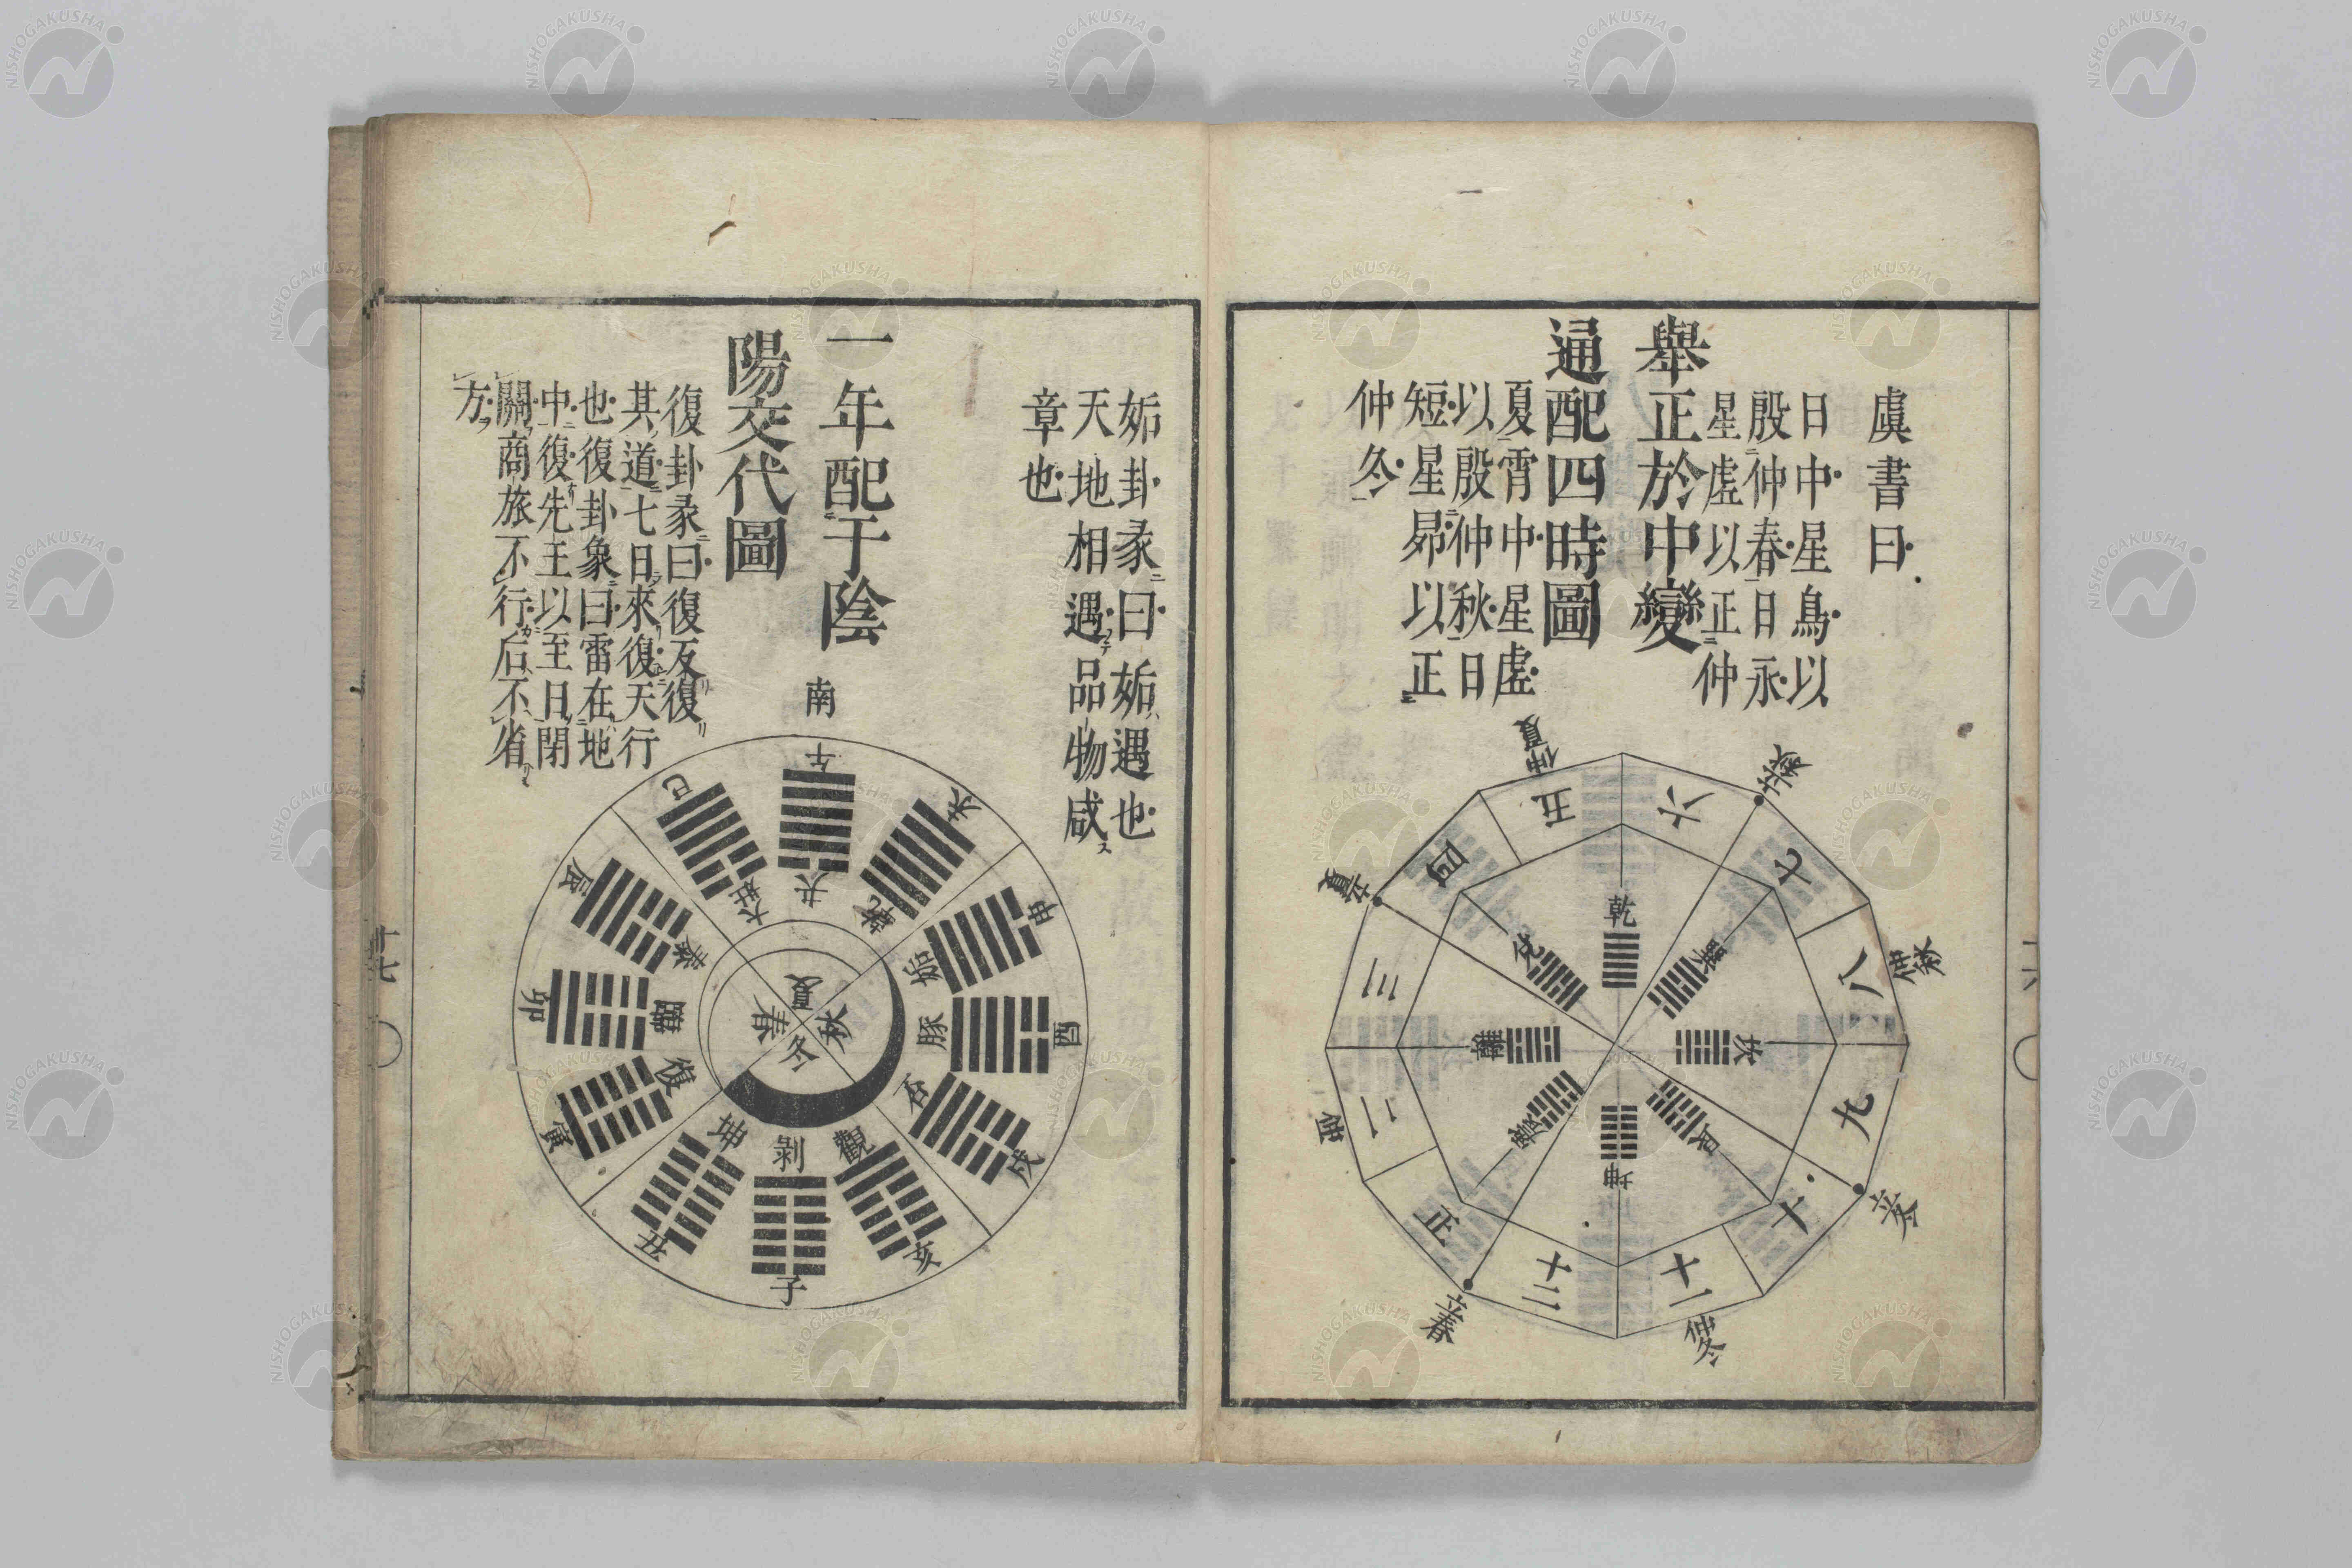 虞書曰
日中星鳥以
殷仲春日永
星虚以正仲
舉正於中變
通配四時圖
夏宵中星虚
以殷仲秋日
短星昴以正
仲冬
仲夏
立秋
五
六
七
四
立夏
八
仲秋
三
乾
兌
離
坎
坤
艮
二
仲
九
立冬
正
十
十二
十一
立春
仲冬
姤卦彖曰姤遇也
天地相遇品物咸
章也
一年配于陰
陽交代圖
南
復卦彖曰復反復
其道七日來復天行
也復卦象曰雷在地
中復先王以至日閉
關商旅不行后不省
方
午
未
申
酉
戌
亥
子
丑
寅
卯
辰
巳
夬
乾
姤
豚
否
觀
剥
坤
復
臨
大壮
夏
秋
冬
春
十七
NISHOGAKUSHA